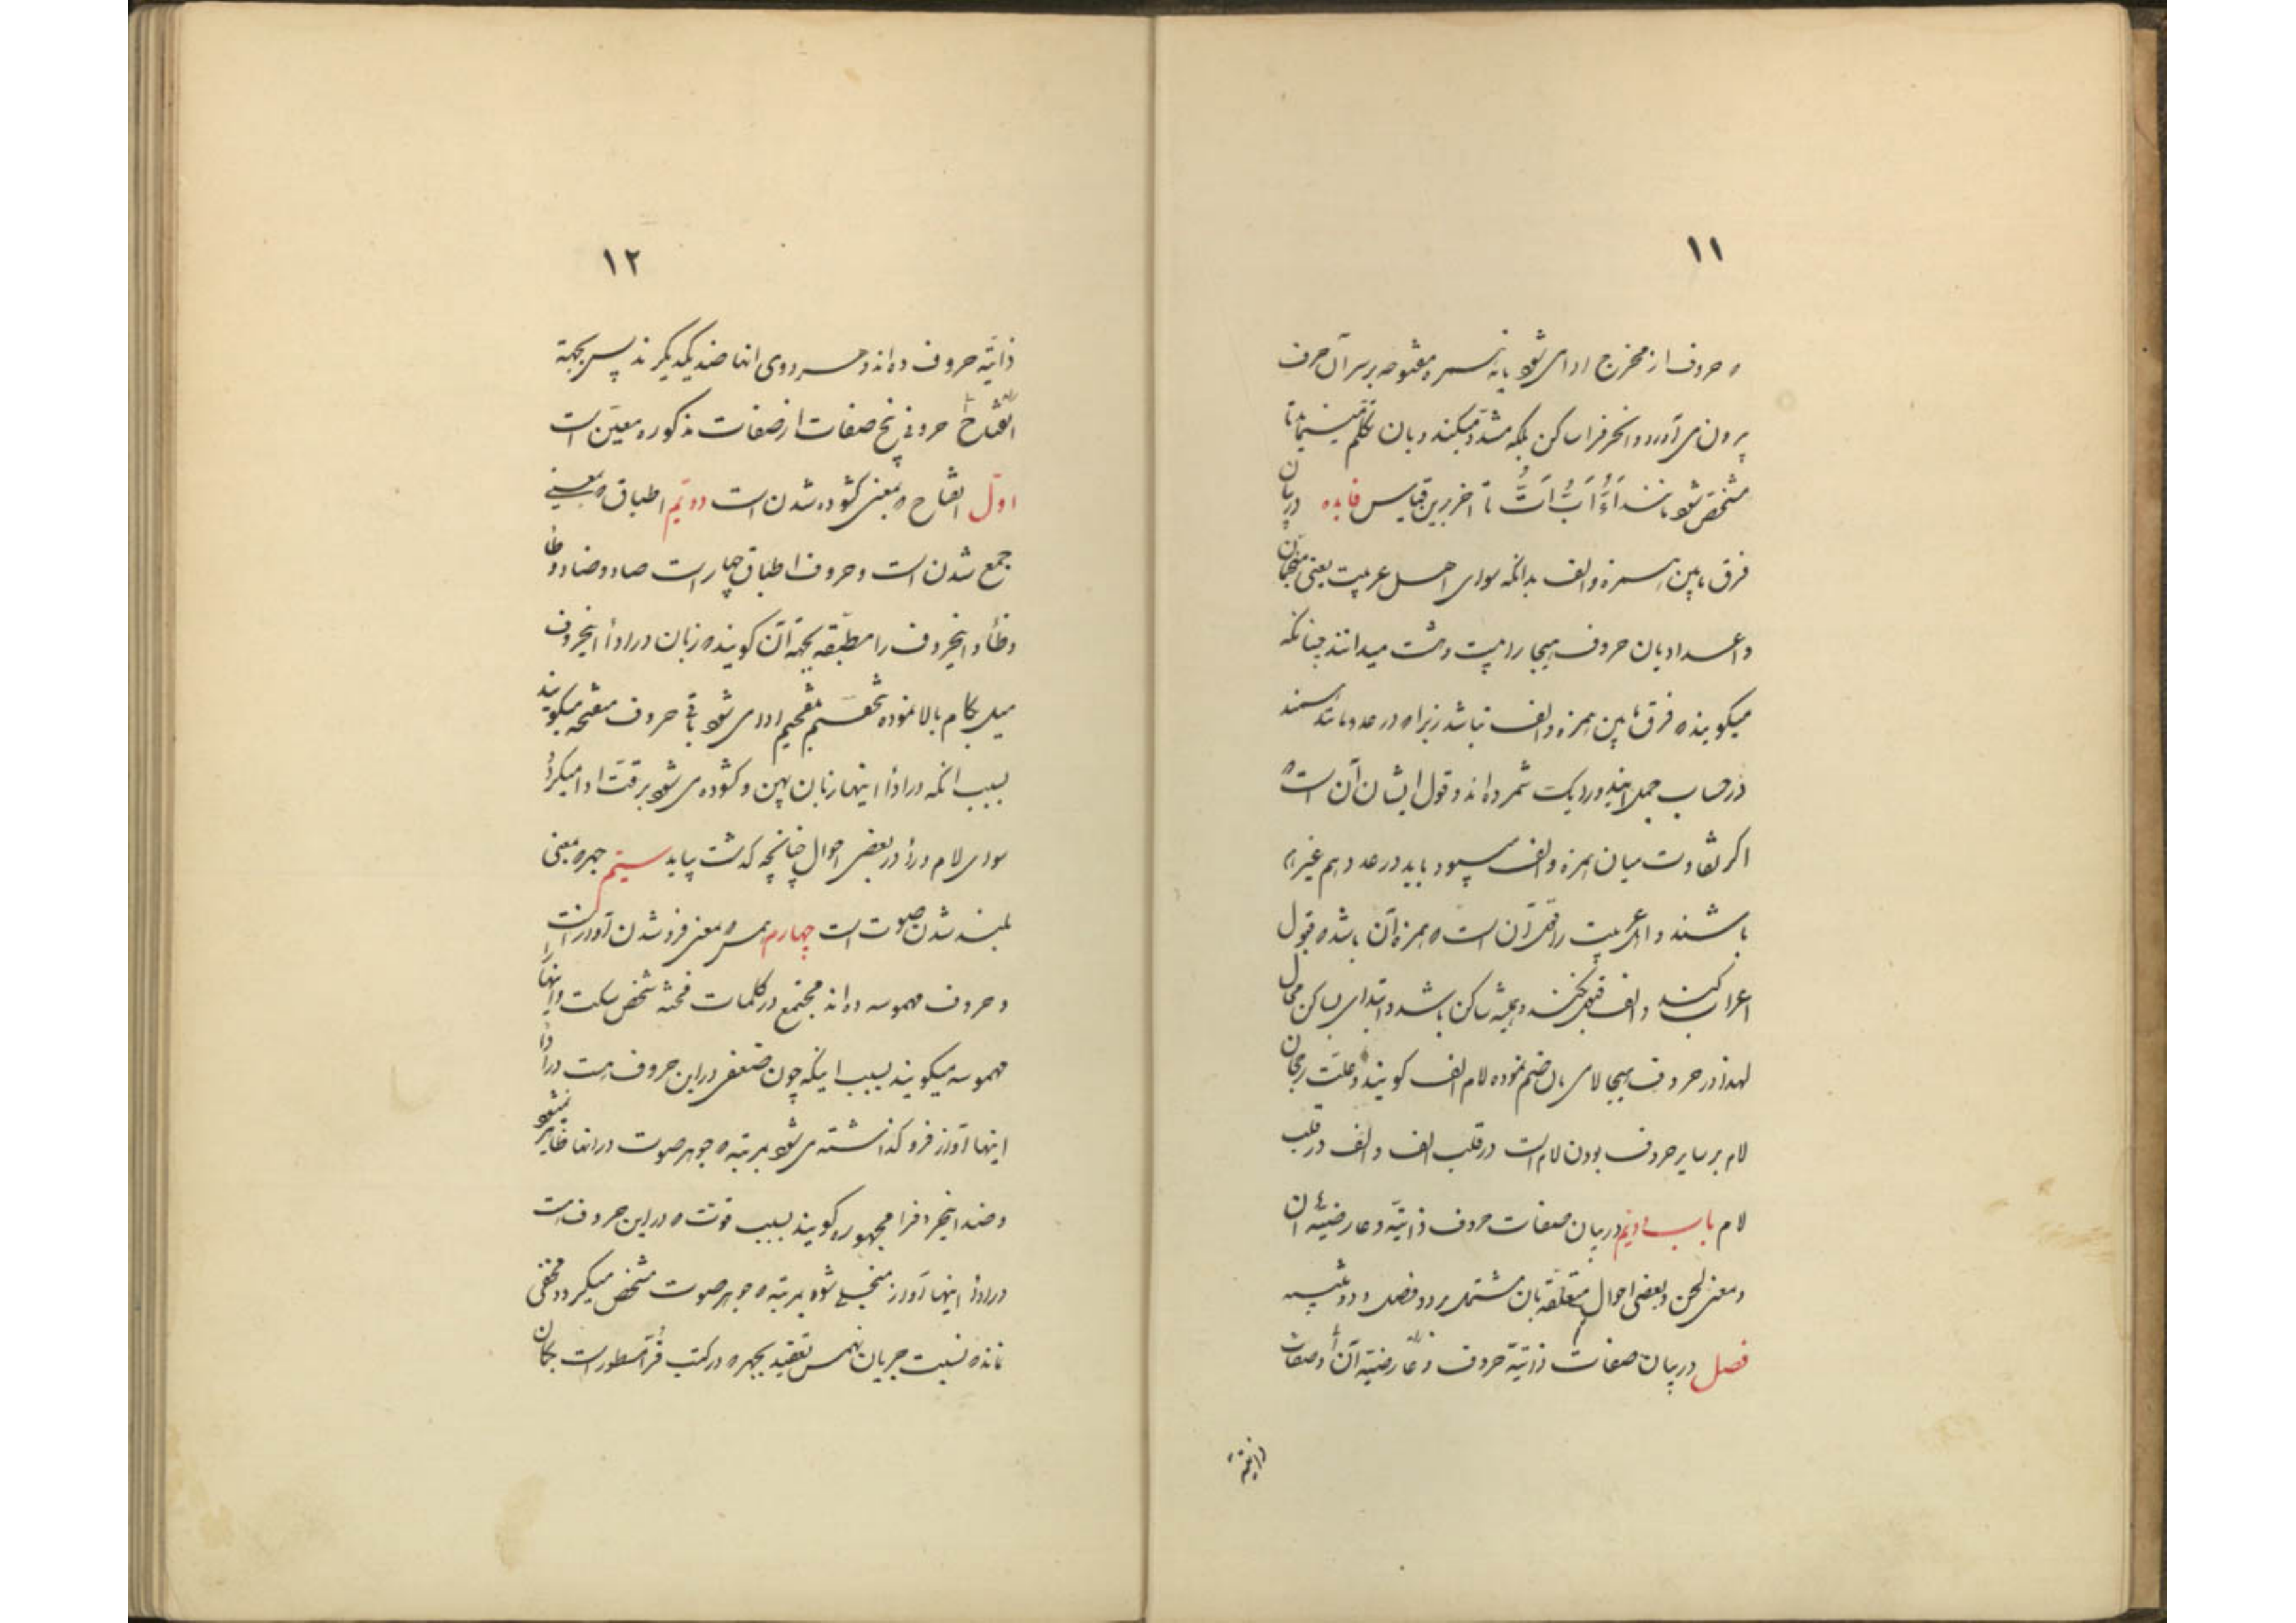 ١١
ه حروف از مخرج ادا می شود یا نه همزه مفتوحه بر سر آن حرف
می آورد و حرف را ساکن بلکه مشدد میکنند و بان تکلم مینمایند تا
مشخص شود مانند أَءّ أَبّ أَتّ تا آخر برین قیاس فایده در بیان
فرق ما بین همزه و الف بدانکه سوای اهل عربیت یعنی منجمان
و اعدادیان حروف هیجا را بیست و هشت میدانند چنانکه
میکویند ه فرق ما بین همزه و الف نباشد زیرا ه در عدد مانند همند
در حساب جمل هر دو را یک شمرده اند و قول ایشان آن است ه
اکر تفاوت میان همزه و الف میبود باید در عدد هم غیر هم
باشند و اهل عربیت را قول آن است ه همزه آن باشد ه قبول
اعراب کند و الف قبول نکند و همیشه ساکن باشد و ابتدای بساکن محال
لهذا در حروف هیجا لامی بان ضم نموده لام الف کویند و علت رجحان
لام بر سایر حروف بودن لام است در قلب الف و الف در قلب
لام باب دویم در بیان صفات حروف ذاتیّه و عارضیّه آن
و معنی لحن و بعضی احوال متعلقه بان مشتمل بر دو فصل و دو تنبیه
فصل در بیان صفات ذاتیّه حروف و عارضیّه آن اما صفات
ذاتیّه
١٢
ذاتیّه حروف ده اند و هر دوی انها ضد یکدیکرند پس بجهة
هر حرفی پنج صفات از صفات مذکوره معیّن است
اوّل انفتاح ه بمعنی کشوده شدن است دویّم اطباق ه بمعنی
جمع شدن است و حروف اطباق چهار است صاد و ضاد و طا
و ظا و اینحروف را مطبقه بجهة آن کویند ه زبان در ادا اینحروف
میل بکام بالا نموده تفخیم ادا می شود باقی حروف منفتحه میکویند
بسبب انکه در ادا اینها زبان پهن و کشوده می شود برقت ادا میکردد
سوای لام و را در بعضی احوال چنانچه کذشت بیاید سیّم جهر ه بمعنی
بلند شدن صوت است چهارم همس ه بمعنی فرو شدن آواز است
و حروف مهموسه ده اند مجتمع در کلمات فحثه شخص سکت و اینها را
مهموسه میکویند بسبب اینکه چون ضعفی در این حروف هست در ادا
اینها آواز فرو کذاشته می شود بمرتبه ه جوهر صوت در انها ظاهر نمیشود
و ضد اینحروف را مجهوره کویند بسبب قوت ه در این حروف هست
در ادا اینها آواز منجلی شود بمرتبه ه جوهر صوت مشخص میکردد مخفی
نماند ه نسبت جریان نفس تقیید بجهر ه در کتب قرّا مسطور است بکمان